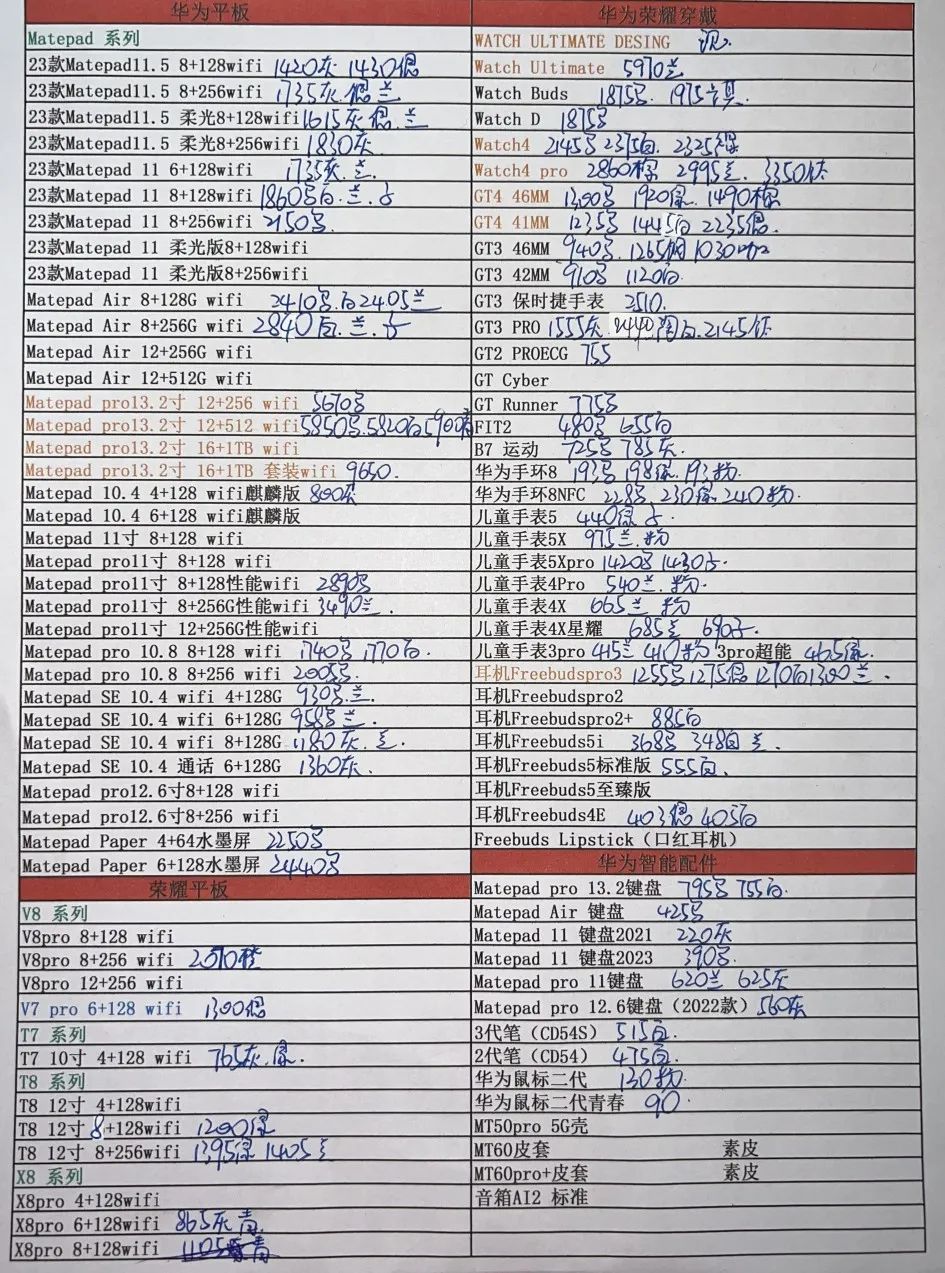 华为平板
Matepad 系列
23款Matepad11.5 8+128wifi 1420灰 1430绿
23款Matepad11.5 8+256wifi 1735灰.绿 兰
23款Matepad11.5 柔光8+128wifi 1615灰 绿.兰
23款Matepad11.5 柔光8+256wifi 1830灰
23款Matepad 11 6+128wifi 1735灰.兰.
23款Matepad 11 8+128wifi 1860白.兰.
23款Matepad 11 8+256wifi 2150
23款Matepad 11 柔光版8+128wifi
23款Matepad 11 柔光版8+256wifi
Matepad Air 8+128G wifi 2410 白2405兰
Matepad Air 8+256G wifi 2840白.兰.
Matepad Air 12+256G wifi
Matepad Air 12+512G wifi
Matepad pro13.2寸 12+256 wifi 5670
Matepad pro13.2寸 12+512 wifi 5850 5820白5900青
Matepad pro13.2寸 16+1TB wifi
Matepad pro13.2寸 16+1TB 套装wifi 9650.
Matepad 10.4 4+128 wifi麒麟版 800灰
Matepad 10.4 6+128 wifi麒麟版
Matepad 11寸 8+128 wifi
Matepad pro11寸 8+128 wifi
Matepad pro11寸 8+128性能wifi 2890
Matepad pro11寸 8+256G性能wifi 3490兰.
Matepad pro11寸 12+256G性能wifi
Matepad pro 10.8 8+128 wifi 1740 1770白.
Matepad pro 10.8 8+256 wifi 2005
Matepad SE 10.4 wifi 4+128G 930 兰.
Matepad SE 10.4 wifi 6+128G 958 兰.
Matepad SE 10.4 wifi 8+128G 1180灰.兰.
Matepad SE 10.4 通话 6+128G 1360灰.
Matepad pro12.6寸8+128 wifi
Matepad pro12.6寸8+256 wifi
Matepad Paper 4+64水墨屏 2250
Matepad Paper 6+128水墨屏 2440
荣耀平板
V8 系列
V8pro 8+128 wifi
V8pro 8+256 wifi
V8pro 12+256 wifi
V7 pro 6+128 wifi 1300绿
T7 系列
T7 10寸 4+128 wifi 765灰.绿.
T8 系列
T8 12寸 4+128wifi
T8 12寸 8+128wifi 1200绿
T8 12寸 8+256wifi 1395绿 1405兰
X8 系列
X8pro 4+128wifi
X8pro 6+128wifi 865灰 青.
X8pro 8+128wifi 青
华为荣耀穿戴
WATCH ULTIMATE DESING
Watch Ultimate 5970兰
Watch Buds 1875 1975
Watch D 1875
Watch4 2145 2315白. 2325
Watch4 pro 2860棕 2995兰. 3350钛
GT4 46MM 1300 1920绿. 1490棕
GT4 41MM 1235 1445白 2235
GT3 46MM 940 1265 1030
GT3 42MM 910 1120白.
GT3 保时捷手表 2510.
GT3 PRO 1555灰. 2440 陶白.2145钛
GT2 PROECG 755
GT Cyber
GT Runner 775
FIT2 480 655白
B7 运动 725 785灰.
华为手环8 193 198绿.193粉.
华为手环8NFC 228 230绿240粉.
儿童手表5 440绿
儿童手表5X 975兰.粉
儿童手表5Xpro 1420 1430
儿童手表4Pro 540兰.粉.
儿童手表4X 665兰 粉
儿童手表4X星耀 685兰 690
儿童手表3pro 415兰 410粉 3pro超能 465绿.
耳机Freebudspro3 1255 1275绿 1270白1300兰.
耳机Freebudspro2
耳机Freebudspro2+ 885白
耳机Freebuds5i 368 348白 兰.
耳机Freebuds5标准版 555白.
耳机Freebuds5至臻版
耳机Freebuds4E 403绿 405白
Freebuds Lipstick（口红耳机）
华为智能配件
Matepad pro 13.2键盘 795 755白.
Matepad Air 键盘 425
Matepad 11 键盘2021 220灰
Matepad 11 键盘2023 390
Matepad pro 11键盘 620兰 625灰
Matepad pro 12.6键盘（2022款）560灰
3代笔（CD54S） 515白.
2代笔（CD54） 475白.
华为鼠标二代 130粉.
华为鼠标二代青春 90.
MT50pro 5G壳
MT60皮套 素皮
MT60pro+皮套 素皮
音箱AI2 标准